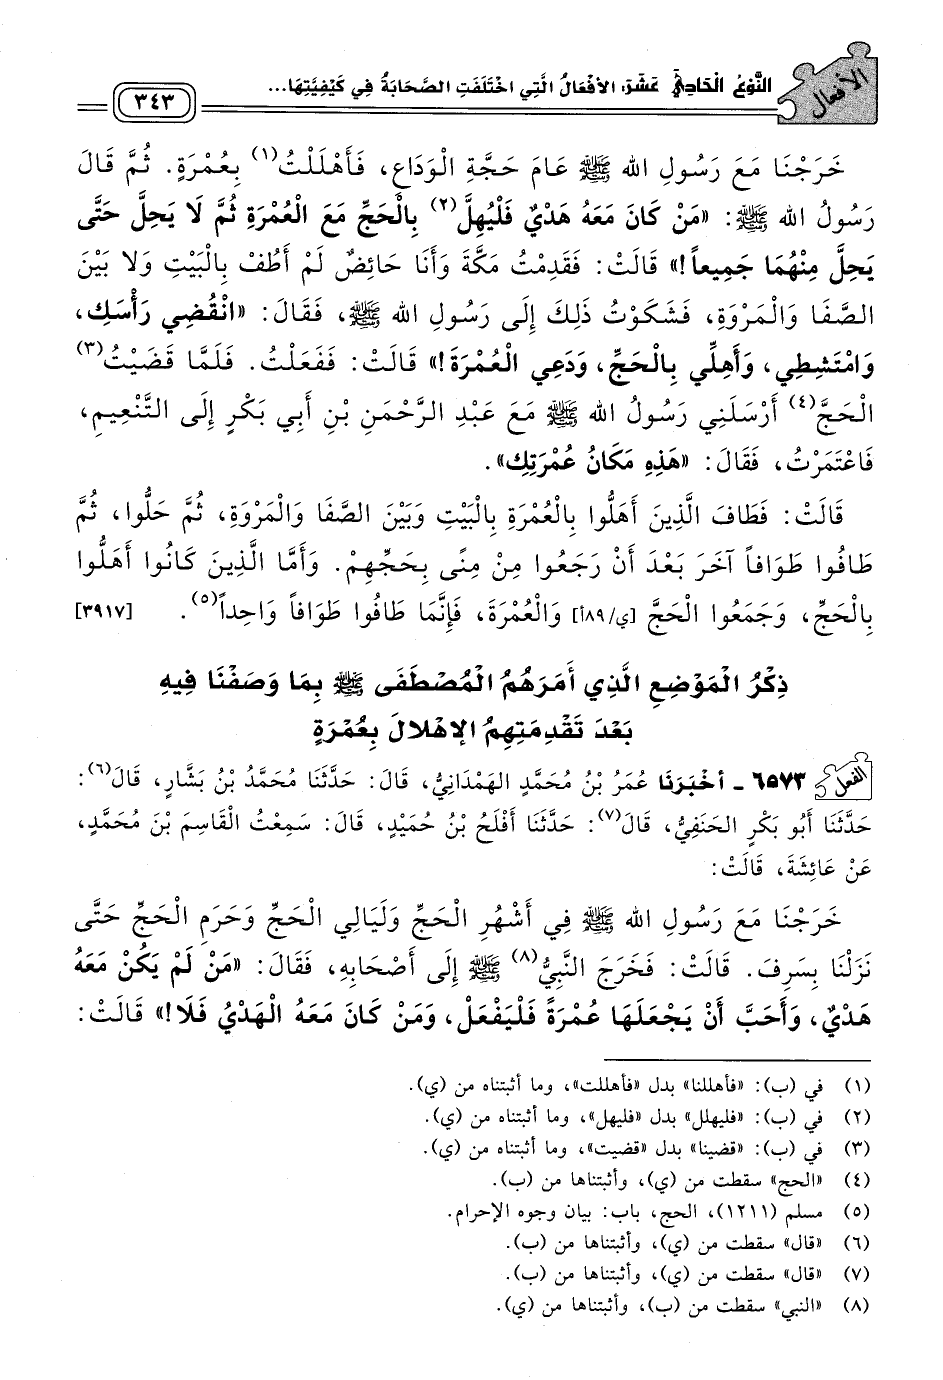 الأفعال
النَّوْعُ الْحَادِي عَشَرَ: الأَفْعَالُ الَّتِي اخْتَلَفَتِ الصَّحَابَةُ فِي كَيْفِيَّتِهَا...
٣٤٣
خَرَجْنَا مَعَ رَسُولِ الله ﷺ عَامَ حَجَّةِ الْوَدَاعِ، فَأَهْلَلْتُ(١) بِعُمْرَةٍ. ثُمَّ قَالَ
رَسُولُ الله ﷺ: «مَنْ كَانَ مَعَهُ هَدْيٌ فَلْيُهِلَّ(٢) بِالْحَجِّ مَعَ الْعُمْرَةِ ثُمَّ لَا يَحِلَّ حَتَّى
يَحِلَّ مِنْهُمَا جَمِيعاً!» قَالَتْ: فَقَدِمْتُ مَكَّةَ وَأَنَا حَائِضٌ لَمْ أَطُفْ بِالْبَيْتِ وَلَا بَيْنَ
الصَّفَا وَالْمَرْوَةِ، فَشَكَوْتُ ذَلِكَ إِلَى رَسُولِ الله ﷺ، فَقَالَ: «انْقُضِي رَأْسَكِ،
وَامْتَشِطِي، وَأَهِلِّي بِالْحَجِّ، وَدَعِي الْعُمْرَةَ!» قَالَتْ: فَفَعَلْتُ. فَلَمَّا قَضَيْتُ(٣)
الْحَجَّ(٤) أَرْسَلَنِي رَسُولُ الله ﷺ مَعَ عَبْدِ الرَّحْمَنِ بْنِ أَبِي بَكْرٍ إِلَى التَّنْعِيمِ،
فَاعْتَمَرْتُ، فَقَالَ: «هَذِهِ مَكَانُ عُمْرَتِكِ».
قَالَتْ: فَطَافَ الَّذِينَ أَهَلُّوا بِالْعُمْرَةِ بِالْبَيْتِ وَبَيْنَ الصَّفَا وَالْمَرْوَةِ، ثُمَّ حَلُّوا، ثُمَّ
طَافُوا طَوَافاً آخَرَ بَعْدَ أَنْ رَجَعُوا مِنْ مِنًى بِحَجِّهِمْ. وَأَمَّا الَّذِينَ كَانُوا أَهَلُّوا
بِالْحَجِّ، وَجَمَعُوا الْحَجَّ [ي/٨٩أ] وَالْعُمْرَةَ، فَإِنَّمَا طَافُوا طَوَافاً وَاحِداً(٥). [٣٩١٧]
ذِكْرُ الْمَوْضِعِ الَّذِي أَمَرَهُمُ الْمُصْطَفَى ﷺ بِمَا وَصَفْنَا فِيهِ
بَعْدَ تَقْدِمَتِهِمُ الإِهْلَالَ بِعُمْرَةٍ
الفعل ٦٥٧٣ - أَخْبَرَنَا عُمَرُ بْنُ مُحَمَّدٍ الهَمْدَانِيُّ، قَالَ: حَدَّثَنَا مُحَمَّدُ بْنُ بَشَّارٍ، قَالَ(٦):
حَدَّثَنَا أَبُو بَكْرٍ الحَنَفِيُّ، قَالَ(٧): حَدَّثَنَا أَفْلَحُ بْنُ حُمَيْدٍ، قَالَ: سَمِعْتُ القَاسِمَ بْنَ مُحَمَّدٍ،
عَنْ عَائِشَةَ، قَالَتْ:
خَرَجْنَا مَعَ رَسُولِ الله ﷺ فِي أَشْهُرِ الْحَجِّ وَلَيَالِي الْحَجِّ وَحَرَمِ الْحَجِّ حَتَّى
نَزَلْنَا بِسَرِفَ. قَالَتْ: فَخَرَجَ النَّبِيُّ(٨) ﷺ إِلَى أَصْحَابِهِ، فَقَالَ: «مَنْ لَمْ يَكُنْ مَعَهُ
هَدْيٌ، وَأَحَبَّ أَنْ يَجْعَلَهَا عُمْرَةً فَلْيَفْعَلْ، وَمَنْ كَانَ مَعَهُ الْهَدْيُ فَلَا!» قَالَتْ:
(١) في (ب): «فأهللنا» بدل «فأهللت»، وما أثبتناه من (ي).
(٢) في (ب): «فليهلل» بدل «فليهل»، وما أثبتناه من (ي).
(٣) في (ب): «قضينا» بدل «قضيت»، وما أثبتناه من (ي).
(٤) «الحج» سقطت من (ي)، وأثبتناها من (ب).
(٥) مسلم (١٢١١)، الحج، باب: بيان وجوه الإحرام.
(٦) «قال» سقطت من (ي)، وأثبتناها من (ب).
(٧) «قال» سقطت من (ي)، وأثبتناها من (ب).
(٨) «النبي» سقطت من (ب)، وأثبتناها من (ي).